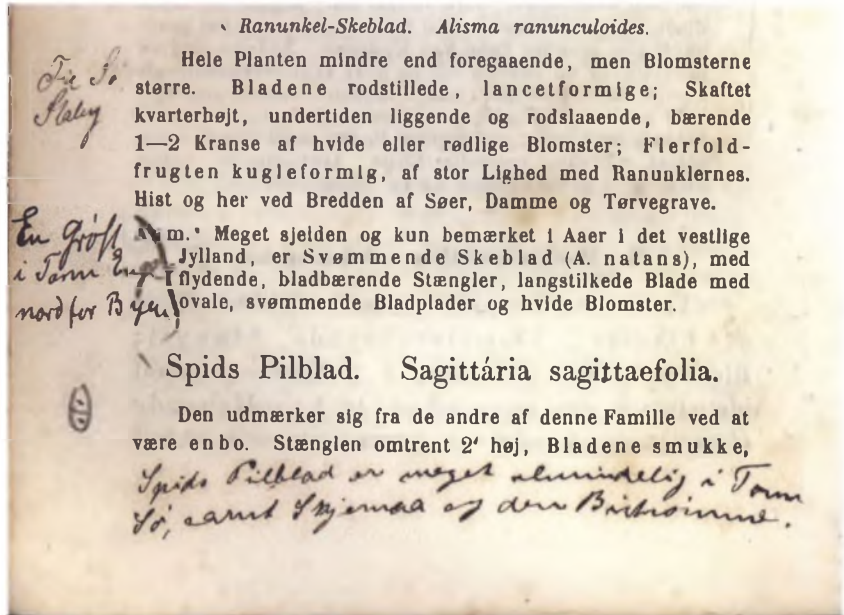 Ranunkel-Skeblad. Alisma ranunculoides.
Hele Planten mindre end foregaaende, men Blomsterne
større. Bladene rodstillede, lancetformige; Skaftet
kvarterhøjt, undertiden liggende og rodslaaende, bærende
1—2 Kranse af hvide eller rødlige Blomster; Flerfold-
frugten kugleformig, af stor Lighed med Ranunklernes.
Hist og her ved Bredden af Søer, Damme og Tørvegrave.
En Grøft
i Tarm Enge
nord for Byen
Anm. Meget sjelden og kun bemærket i Aaer i det vestlige
Jylland, er Svømmende Skeblad (A. natans), med
flydende, bladbærende Stængler, langstilkede Blade med
ovale, svømmende Bladplader og hvide Blomster.
Spids Pilblad. Sagittária sagittaefolia.
Den udmærker sig fra de andre af denne Familie ved at
være enbo. Stænglen omtrent 2' høj, Bladene smukke,
Spids Pilblad er meget almindelig i Tarm
Sø, samt Skjernaa og den